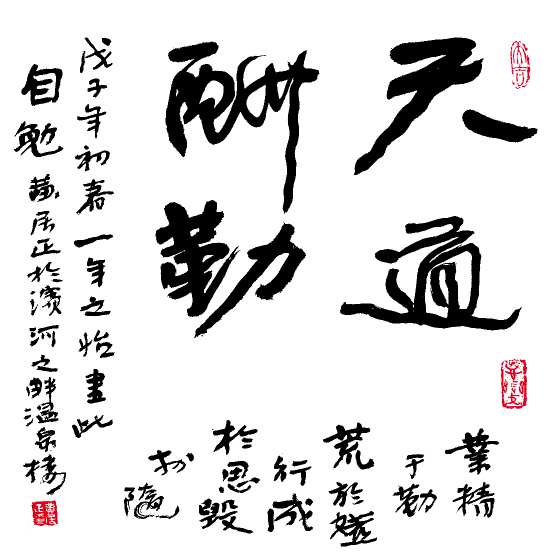 天道
酬勤
業精
于勤
荒於嬉
行成
於思毀
於隨
戊子年初春一年之始書此
自勉 黃居正於濱河之畔溫泉樓